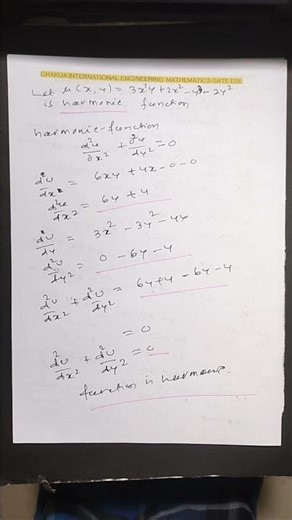 CHAKUA INTERNATIONAL ENGINEERING MATHEMATICS GATE ESE
Let u(x,y) = 3x²y + 2x² - y³ - 2y²
is harmonic function
harmonic-function
∂²u/∂x² + ∂²u/∂y² = 0
d²u/dx² = 6xy + 4x - 0 - 0
d²u/dx² = 6y + 4
d²u/dy = 3x² - 3y² - 4y
d²u/dy² = 0 - 6y - 4
d²u/dx² + d²u/dy² = 6y + 4 - 6y - 4
= 0
d²u/dx² + d²u/dy² = 0
function is harmonic.